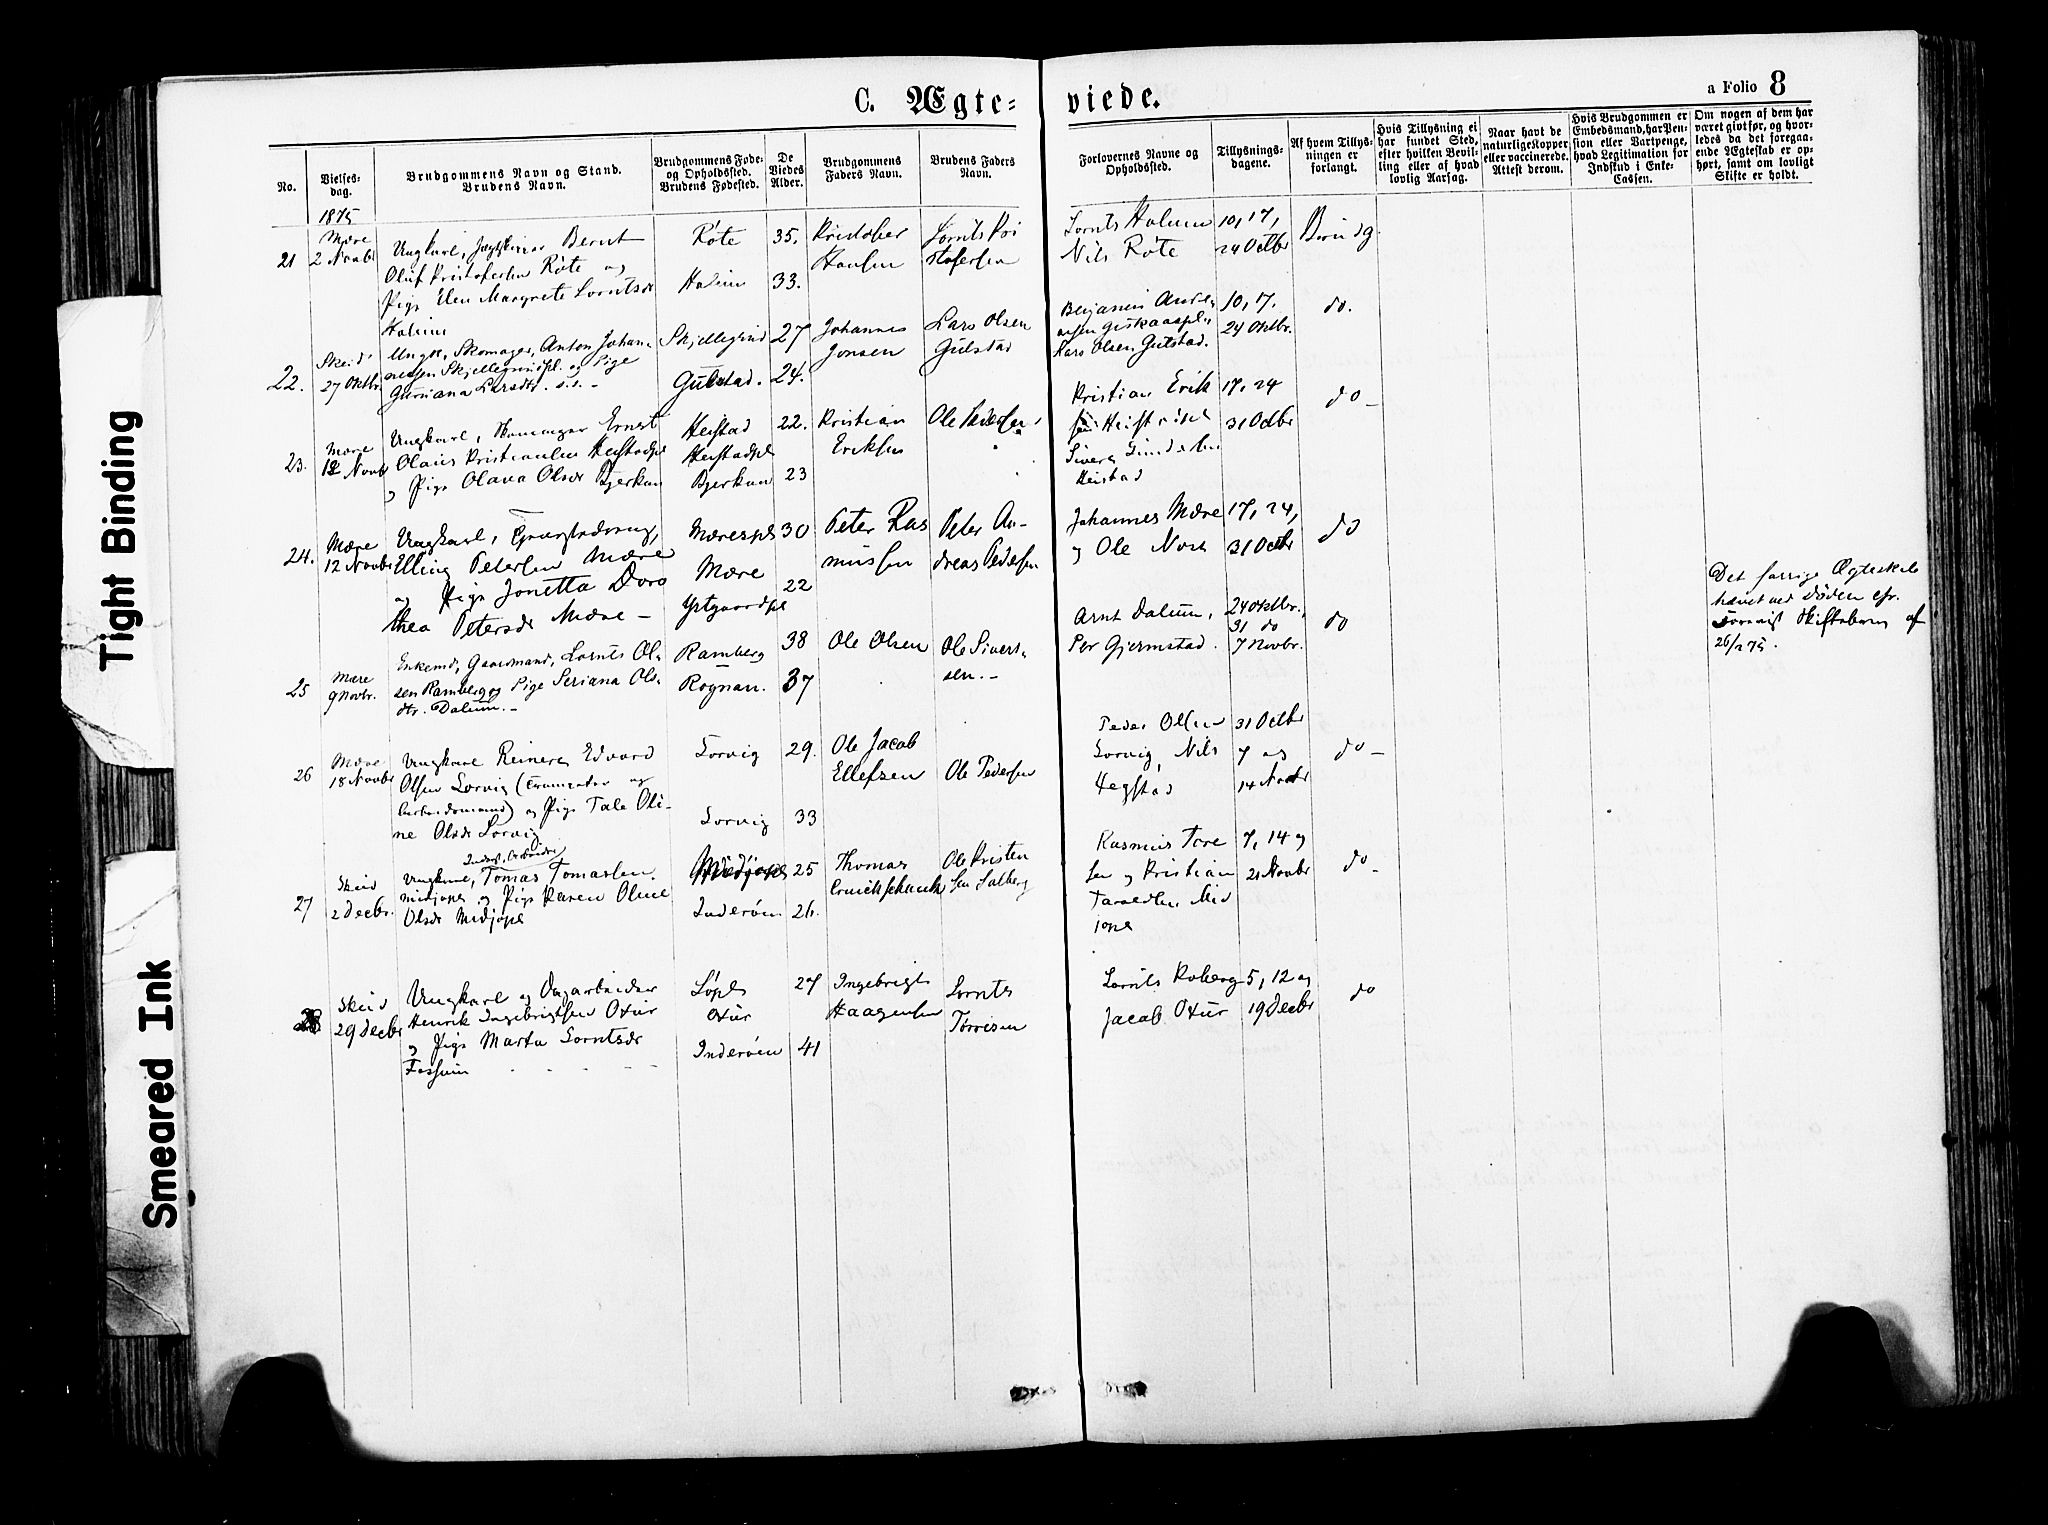 Tight Binding
Smeared Ink
C. Ægte=
viede.
a Folio 8
No.
Vielses-
dag.
Brudgommens Navn og Stand.
Brudens Navn.
Brudgommens Føde-
og Opholdssted.
Brudens Fødested.
De
Viedes
Alder.
Brudgommens
Faders Navn.
Brudens Faders
Navn.
Forlovernes Navne og
Opholdssted.
Tillysnings-
dagene.
Af hvem Tillys-
ningen er
forlangt.
Hvis Tillysning ei
har fundet Sted,
efter hvilken Bevil-
ling eller af hvad
lovlig Aarsag.
Naar havt de
naturlige Kopper
eller vaccinerede.
Attest derom.
Hvis Brudgommen er
Embedsmand, har Pen-
sion eller Vartpenge,
hvad Legitimation for
Indskud i Enke-
Cassen.
Om nogen af dem har
været givt før, og hvor-
ledes da det foregaa-
ende Ægteskab er op-
hørt, samt om lovligt
Skifte er holdt.
1875
21
Mære
2 Novbr
Ungkarl, Bernt
Oluf Kristofersen Røte og
Pige Elen Margrete Lorntsdr
Halvin
Røte
35.
33.
Kristofer
Hansen
Lornts Kri
stofersen
Lornts
Nils Røte
10, 17,
24 Octbr
Brudg.
22.
Skeid
27 Oktbr.
Ungk., Skomager, Anton Johan-
nesen Skjellegrindpl. og Pige
Guruana Larsdtr.
Skjellegrind
Gulstad.
27
24.
Johannes
Jonsen
Lars Olsen
Gulstad
Benjamin Andre
Lars Olsen Gulstad.
10, 17.
24 Oktbr.
do.
23.
Mære
12 Novbr
Ungkarl, Skomager Ernst
Olaus Kristiansen Heistadpl
og Pige Olava Olsdr Bjerkan
Heistad
Heistadpl
Bjerkan
22.
23
Kristian
Eriksen
Ole Pedersen
Kristian Erik
sen
Sivert Gundersen
Heistad
17, 24
31 Octbr
do -
24.
Mære
12 Novbr
Ungkarl,
Elling Petersen Mære
og Pige Jonetta Doro
thea Petersdr Mære -
Mærespl
Mære
Ystgaardpl
30
22
Peter Ras
mussen
Peter An-
dreas Pedersen
Johannes Mære
og Ole
17, 24,
31 Octbr
do
25
Mære
9 Novbr.
Enkemd, Gaardmand, Lornts Ol-
sen Ramberg og Pige Seriana Ols-
dtr. Dalum. -
Ramberg
Rognan.
38
37
Ole Olsen
Ole Sivert-
sen. -
Arnt Dalum,
Per Gjermstad.
24 Oktbr.,
31 do
7 Novbr.
do
Det forrige Ægteskab
hævet ved Døden
Skiftebrev af
26/2 75.
26
Mære
18 Novbr
Ungkarl Reinert Edvard
Olsen Lorvig ( og
arbeidsmand) og Pige Tale Oli-
ne Olsdr Lorvig
Lorvig
Lorvig
29.
33
Ole Jacob
Ellefsen
Ole Pedersen
Peder Olsen
Lorvig, Nils
Hegstad
31 Octbr
7 og
14 Novbr
do -
27
Skeid
2 Decbr.
Inderst, Arbeider
Ungkarl, Tomas Tomassen
Midjopl og Pige Karen Oline
Olsdr Midjopl
Inderøen
25
26.
Thomas
Cruickshank
Ole Kristen
sen Salberg
Rasmus Tore
sen og Kristian
Mid
jopl
7, 14 og
21 Novbr
do -
28
Skeid
29 Decbr
Ungkarl og Dagarbeider
Henrik Ingebrigtsen Oxur
og Pige Marta Lorntsdr
Fossum
Oxur
Inderøen
27
41
Ingebrigt
Haagensen
Lornts
Tørrisen
Lornts Roberg
Jacob Oxur
5, 12 og
19 Decbr
do